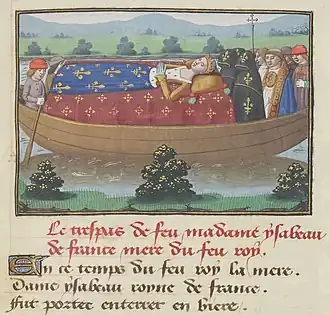 Le trespas de feu madame ysabeau
de france mere du feu roy.
En ce temps du feu roy la mere.
Dame ysabeau royne de france.
Fut portee enterrer en biere.